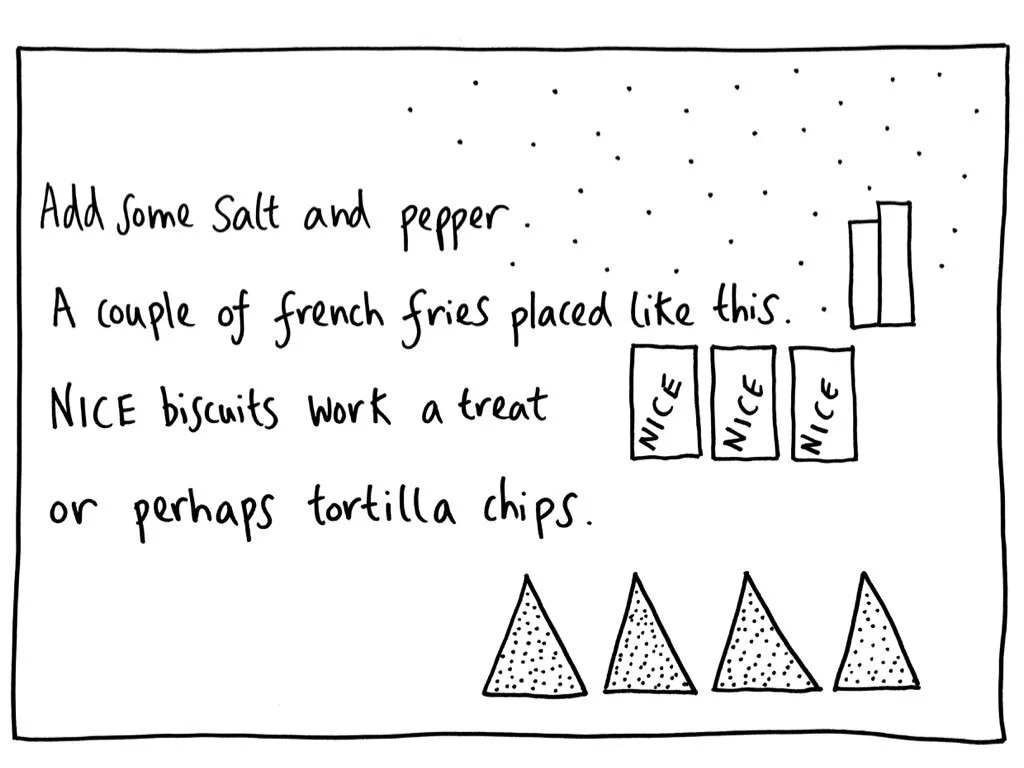 Add some salt and pepper.
A couple of french fries placed like this.
NICE biscuits work a treat
NICE NICE NICE
or perhaps tortilla chips.